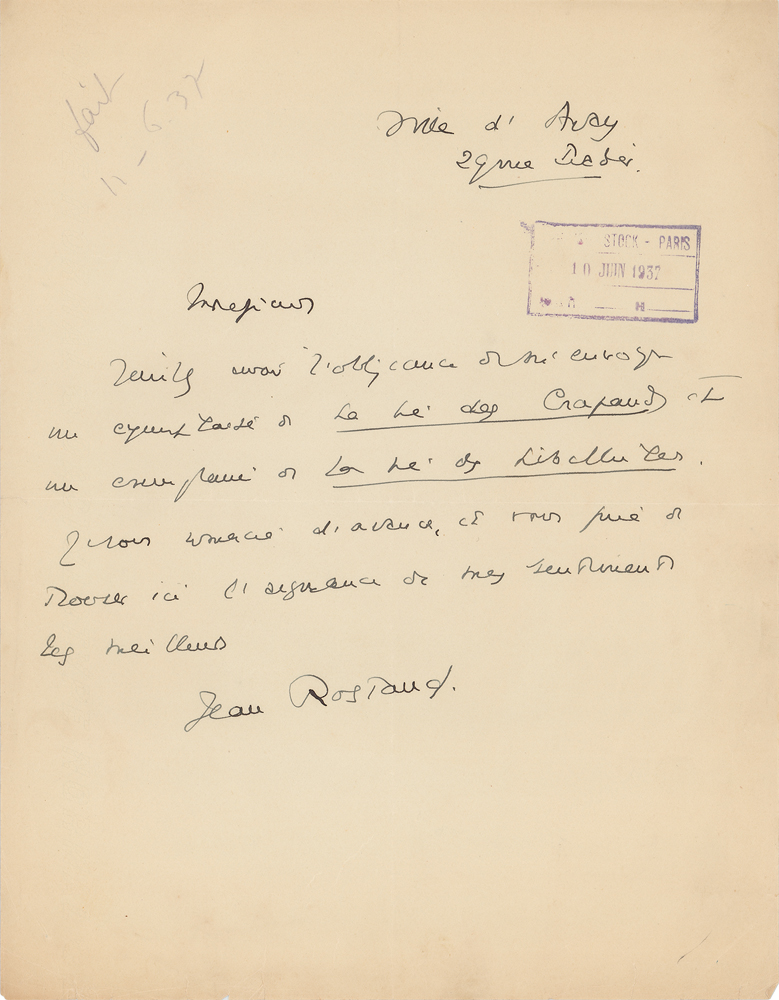 fait
11 - 6. 37
Ville d' Avray
29 rue Pradier.
STOCK - PARIS
10 JUIN 1937
H
Monsieur
Veuillez avoir l'obligeance de m'envoyer
un exemplaire de La Vie des Crapauds et
un exemplaire de La Vie des Libellules.
Je vous remercie d'avance, et vous prie de
trouver ici l'assurance de mes sentiments
les meilleurs
Jean Rostand.